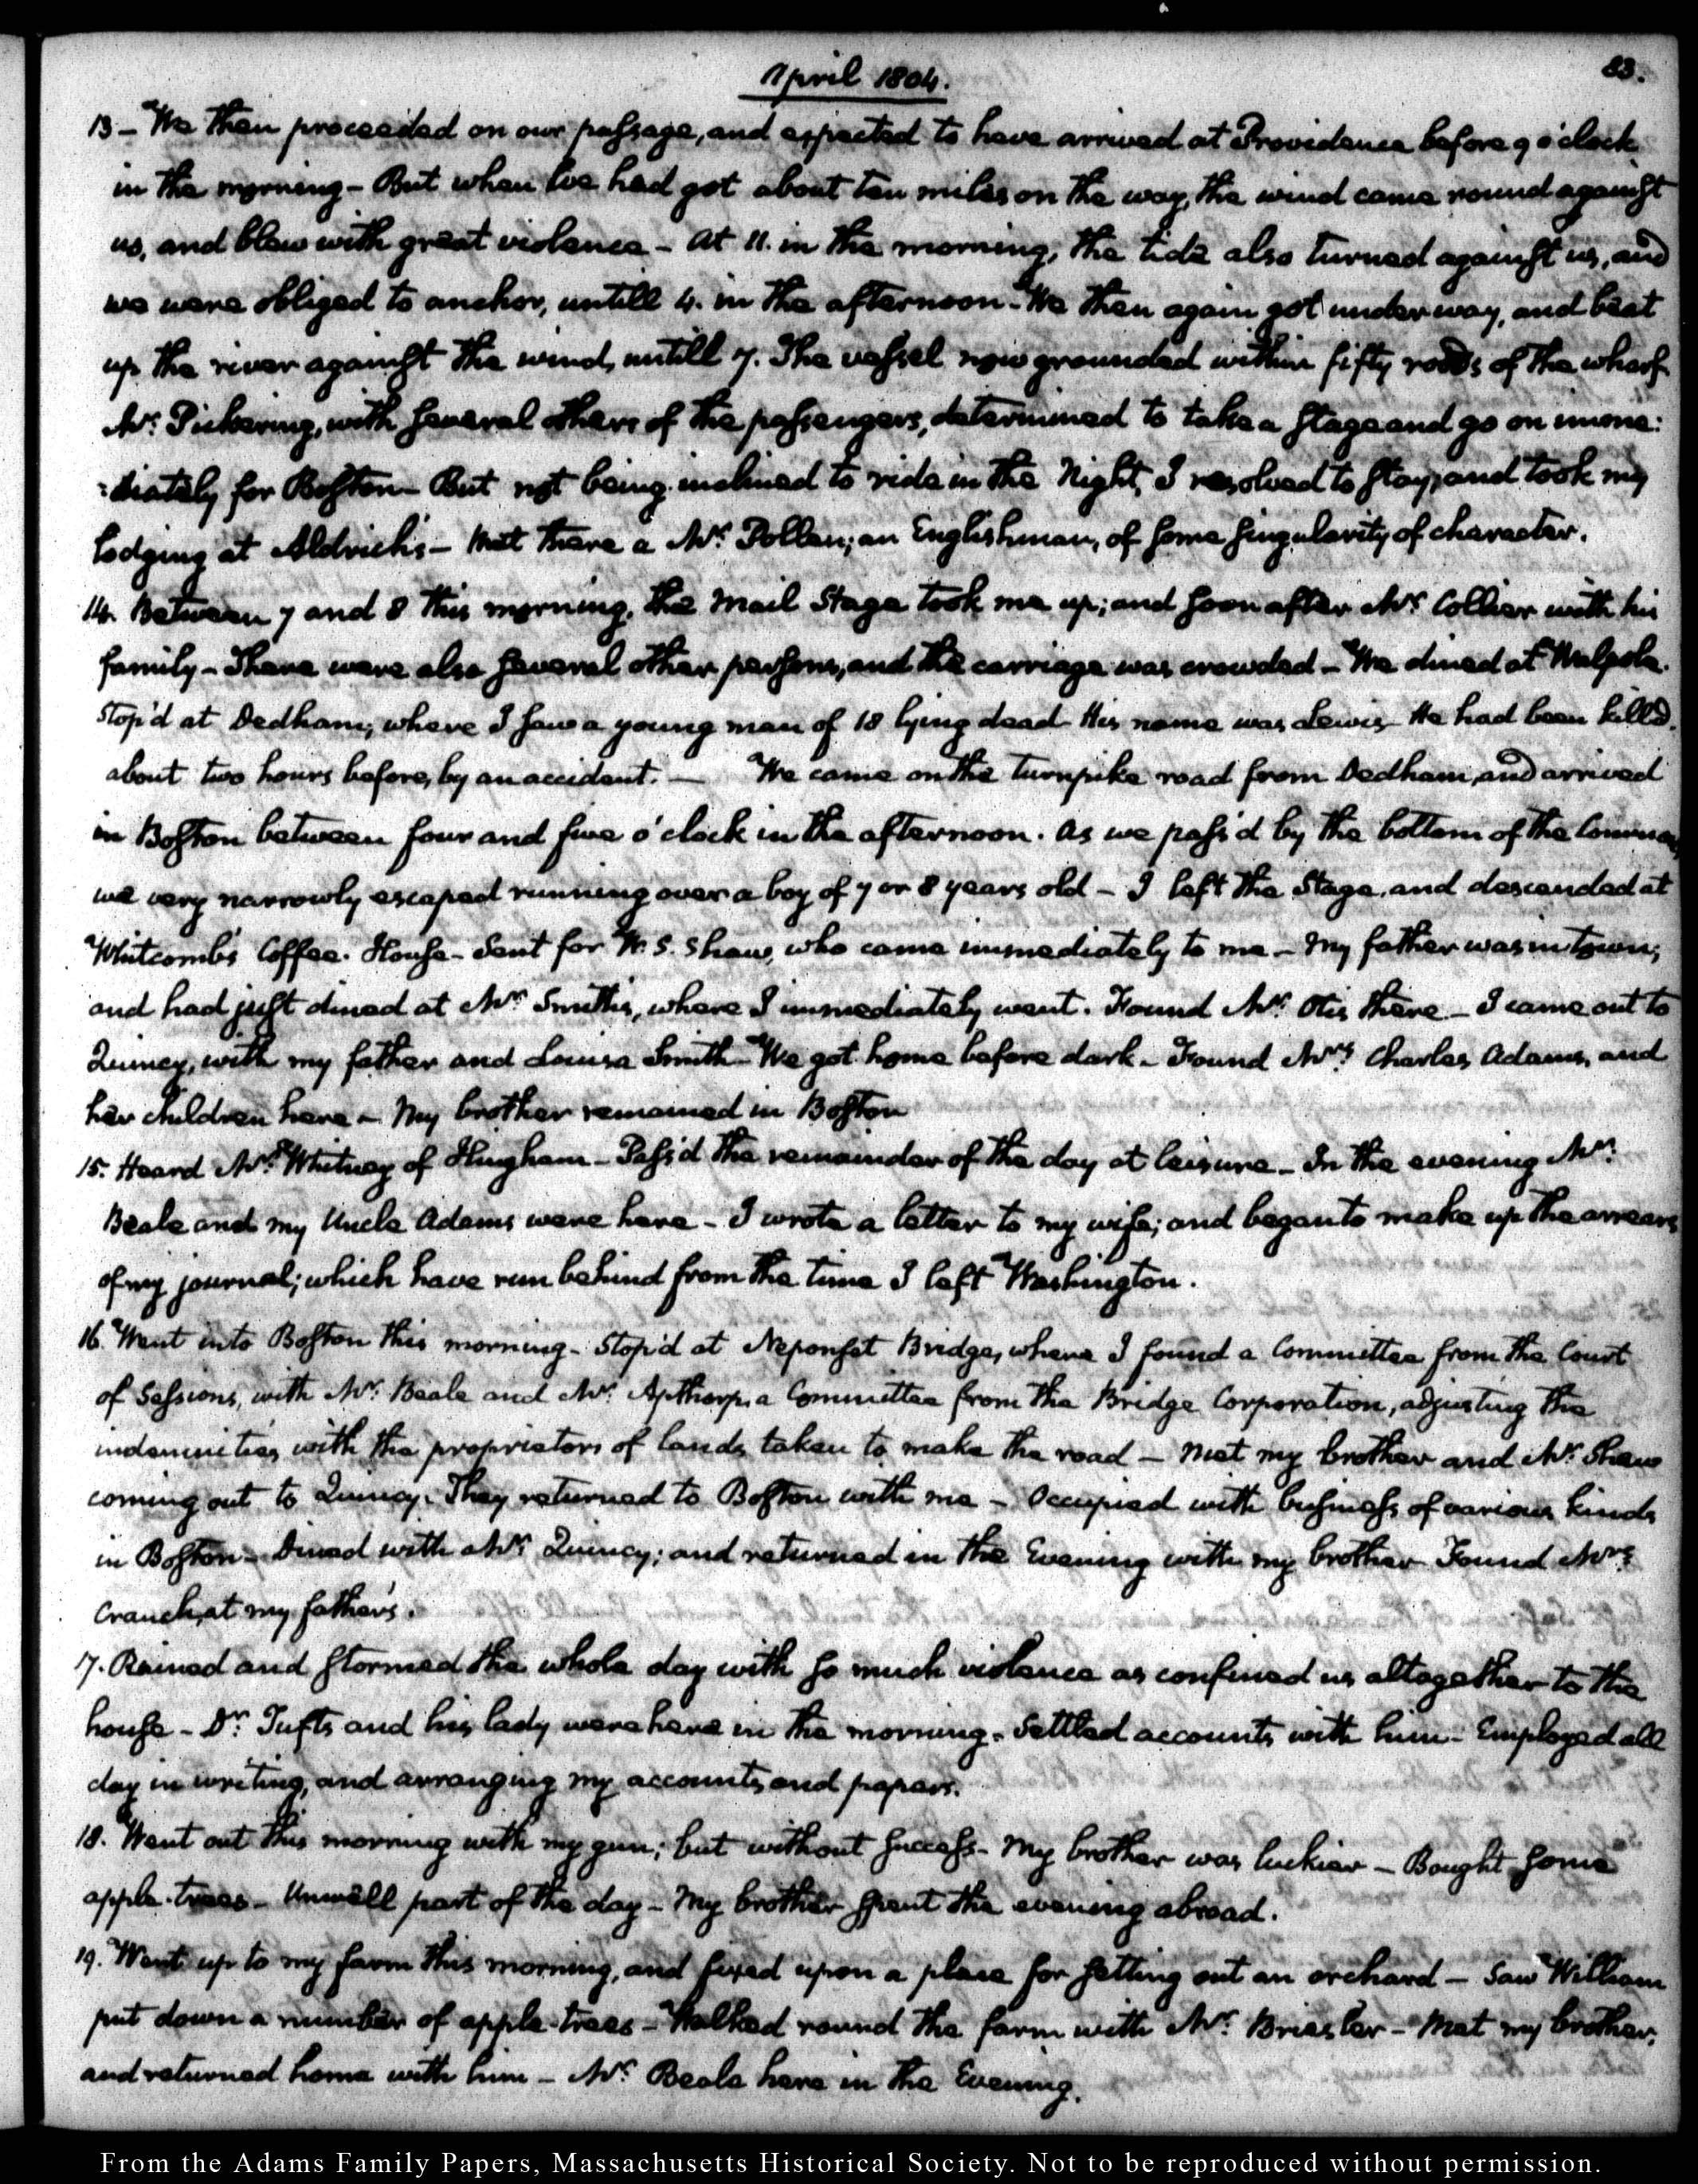 April 1804.
83.
13 – We then proceeded on our passage, and expected to have arrived at Providence before 9 o'clock
in the morning – But when we had got about ten miles on the way, the wind came round against
us, and blew with great violence – At 11. in the morning, the tide also turned against us, and
we were obliged to anchor, untill 4. in the afternoon – We then again got under way, and beat
up the river against the wind, untill 7. The vessel now grounded within fifty rods of the wharf.
Mr. Pickering, with several others of the passengers, determined to take a stage and go on imme:
:diately for Boston – But not being inclined to ride in the Night, I resolved to stay, and took my
lodging at Aldrich's – Met there a Mr. Pollen; an Englishman, of some singularity of character.
14. Between 7 and 8 this morning, the Mail Stage took me up; and soon after Mr. Collier with his
family – There were also several other persons, and the carriage was crowded – We dined at Walpole.
Stop'd at Dedham, where I saw a young man of 18 lying dead – His name was Lewis – He had been killed
about two hours before, by an accident. — We came on the turnpike road from Dedham, and arrived
in Boston between four and five o'clock in the afternoon. As we pass'd by the bottom of the Common,
we very narrowly escaped running over a boy of 7 or 8 years old – I left the Stage, and descended at
Whitcomb's Coffee-House – Sent for W. S. Shaw, who came immediately to me – My father was in town;
and had just dined at Mr. Smith's, where I immediately went. Found Mr. Otis there – I came out to
Quincy, with my father and Louisa Smith – We got home before dark – Found Mrs. Charles Adams, and
her children here – My brother remained in Boston
15. Heard Mr. Whitney of Hingham – Pass'd the remainder of the day at leisure – In the evening Mr.
Beale and my Uncle Adams were here – I wrote a letter to my wife; and began to make up the arrears
of my journal; which have run behind from the time I left Washington.
16. Went into Boston this morning – Stop'd at Neponset Bridge, where I found a Committee from the Court
of Sessions, with Mr. Beale and Mr. Apthorp, a Committee from the Bridge Corporation, adjusting the
indemnities with the proprietors of lands taken to make the road – Met my brother and Mr. Shaw
coming out to Quincy. They returned to Boston with me – Occupied with business of various kinds
in Boston – Dined with Mr. Quincy; and returned in the Evening with my brother – Found Mrs.
Cranch, at my father's.
17. Rained and stormed the whole day with so much violence as confined us altogether to the
house – Dr. Tufts and his lady were here in the morning – Settled accounts with him – Employed all
day in writing, and arranging my accounts and papers.
18. Went out this morning with my gun; but without success – My brother was luckier – Bought some
apple-trees – Unwell part of the day – My brother spent the evening abroad.
19. Went up to my farm this morning, and fixed upon a place for setting out an orchard – Saw William
put down a number of apple-trees – Walked round the farm with Mr. Briesler – Met my brother,
and returned home with him – Mr. Beale here in the Evening.
From the Adams Family Papers, Massachusetts Historical Society. Not to be reproduced without permission.